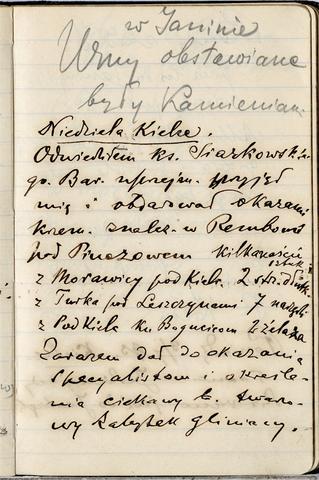 w Janinie
Urny obstawiane
były Kamieniam
Niedziela Kielce.
Odwiedziłem ks. Siarkowskie
go. Bar. uprzejm. przyjął
mię i obdarował okazami
krzem. znalez. w Rembowie
pod Pinczowem kilkanaście
sztuk
z Morawicy pod Kielc. 2
z Turka pod Leszczynami 7
z Pod Kielc ku
Zarazem dał do okazania
specyalistom i określe-
nia ciekawy b. 
wy zabytek gliniany.